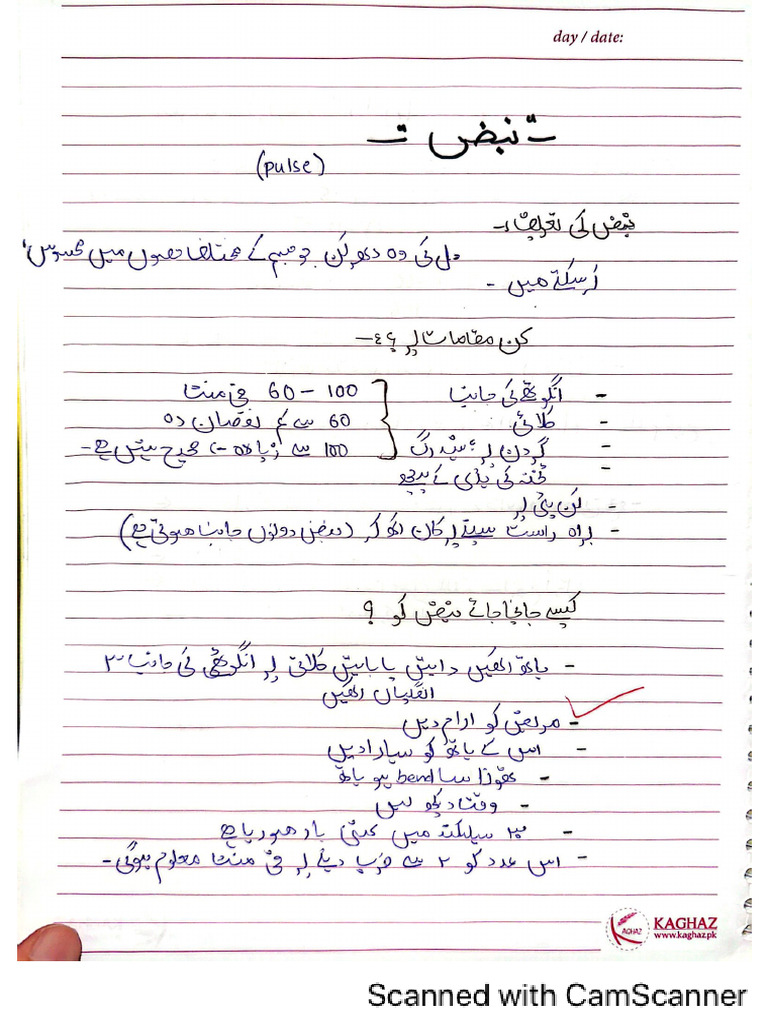 day / date:
نبض
(pulse)
نبض کی تعریف:-
دل کی وہ دھڑکن جو جسم کے مختلف حصوں میں محسوس
کر سکتے میں -
کن مقامات پر ؟
- انگوٹھے کی جانب
60 – 100 فی منٹ
- کلائی
60 سے کم نقصان دہ
- گردن پر شہ رگ
100 سے زیادہ صحیح نہیں ہے -
- ٹخنہ کی ہڈی کے نیچے
- کن پٹی پر
- براہ راست سینے پر کان رکھ کر (نبض دونوں جانب ہوتی ہے)
کیسے جانچا جائے نبض کو ؟
- ہاتھ رکھیں دایئں یا بایئں کلائی پر انگوٹھے کی جانب ۳
انگلیاں رکھیں
- مریض کو ارام دیں
- اس کے ہاتھ کو سہارا دیں
- تھوڑا سا bend ہو ہاتھ
- وقت دیکھ لیں
- ۳۰ سیکنڈ میں کتنی بار ہو رہا ہے
- اس عدد کو ۲ سے ضرب دینے پر فی منٹ معلوم ہوگی -
KAGHAZ
www.kaghaz.pk
Scanned with CamScanner